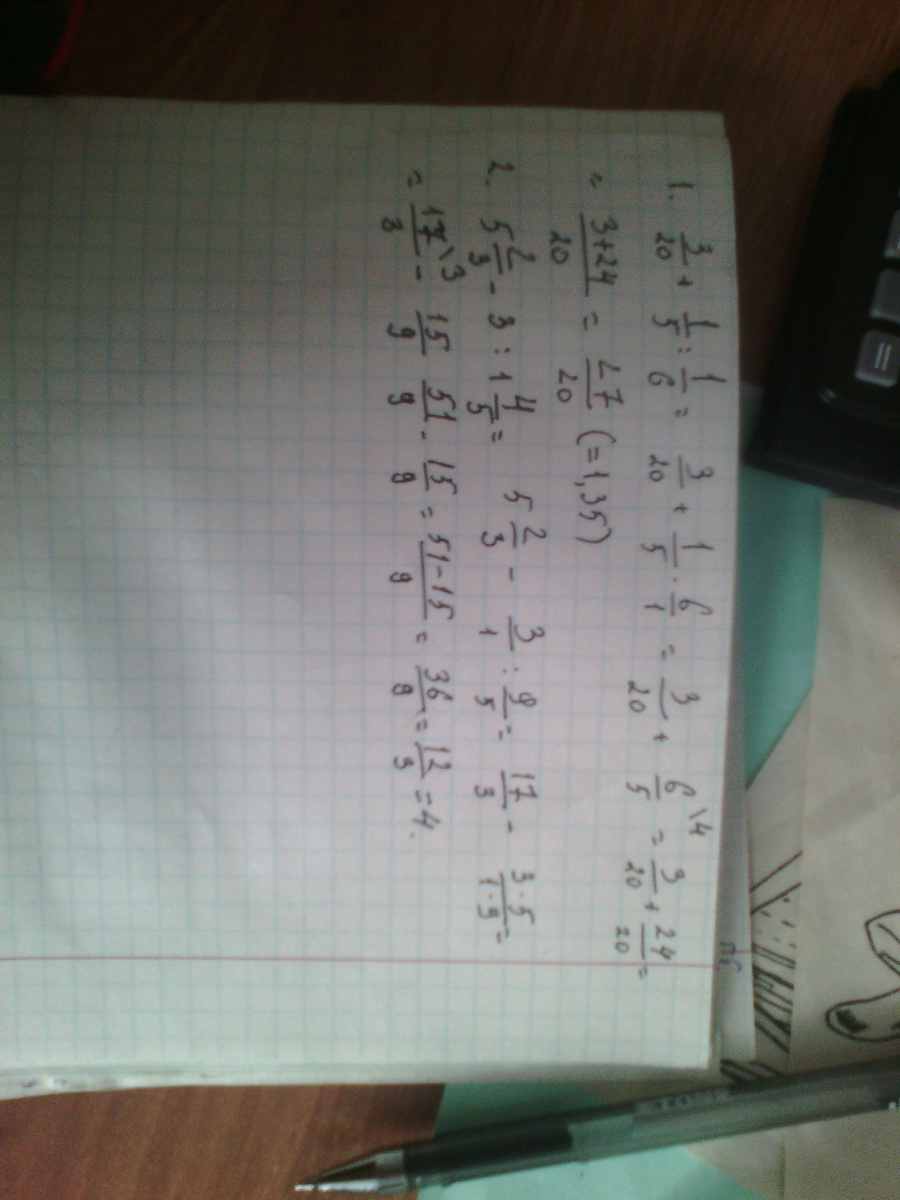 1. 3/20 + 1/5 : 1/6 = 3/20 + 1/5 · 6/1 = 3/20 + 6\4/5 = 3/20 + 24/20 =
= 3+24/20 = 27/20 (=1,35)
2. 5 2/3 - 3 : 1 4/5 = 5 2/3 - 3/1 : 9/5 = 17/3 - 3·5/1·9 =
= 17\3/3 - 15/9 51/9 - 15/9 = 51-15/9 = 36/9 = 12/3 = 4.
=